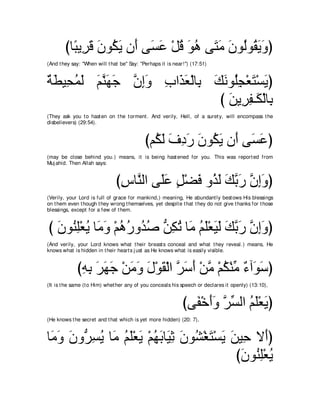 (وَيَقُولُونَ مَتَىٰ هُوَ قُلْ عَسَىٰ أَن يَكُونَ قَرِيبًا)
(And they say: "When will that be" Say: "Perhaps it is near!") (17:51)
(يَسْتَعْجِلُونَكَ بِالْعَذَابِ وَإِنَّ جَهَنَّمَ لَمُحِيطَةٌ
بِالْكَـفِرِينَ )
(They ask you to hasten on the torment. And verily, Hell, of a surety, will encompass the
disbelievers) (29:54),
(عَسَىٰ أَن يَكُونَ رَدِفَ لَكُم)
(may be close behind you.) means, it is being hastened for you. This was reported from
Mujahid. Then Allah says:
(وَإِنَّ رَبَّكَ لَذُو فَضْلٍ عَلَى النَّاسِ)
(Verily, your Lord is full of grace for mankind,) meaning, He abundantly bestows His blessings
on them even though they wrong themselves, yet despite that they do not give thanks for those
blessings, except for a few of them.
(وَإِنَّ رَبَّكَ لَيَعْلَمُ مَا تُكِنُّ صُدُورُهُمْ وَمَا يُعْلِنُونَ )
(And verily, your Lord knows what their breasts conceal and what they reveal.) means, He
knows what is hidden in their hearts just as He knows what is easily visible.
(سَوَآءٌ مِّنْكُمْ مَّنْ أَسَرَّ الْقَوْلَ وَمَنْ جَهَرَ بِهِ)
(It is the same (to Him) whether any of you conceals his speech or declares it openly) (13:10),
(يَعْلَمُ السِّرَّ وَأَخْفَى)
(He knows the secret and that which is yet more hidden) (20: 7),
(أَلا حِينَ يَسْتَغْشُونَ ثِيَابَهُمْ يَعْلَمُ مَا يُسِرُّونَ وَمَا
يُعْلِنُونَ)